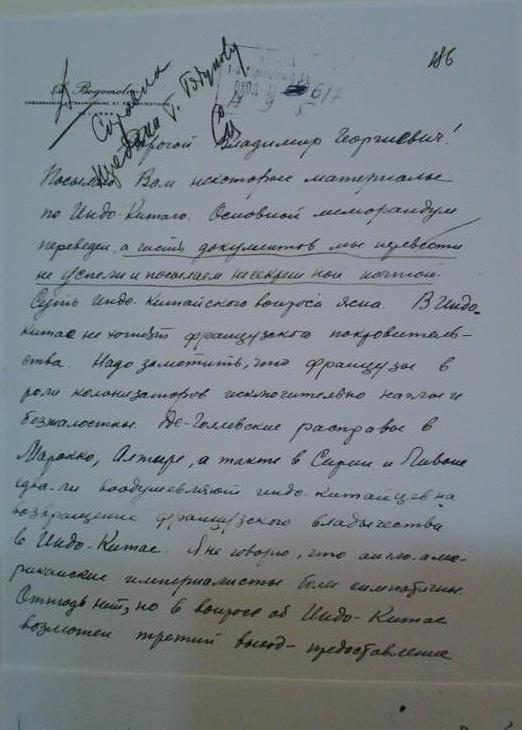 186
Дорогой Владимир Георгиевич!
Посылаю Вам некоторые материалы
по Индо-Китаю. Основной меморандум
переведен, а часть документов мы перевести
не успели и посылаем несекретной почтой.
Суть Индо-Китайского вопроса ясна. В Индо-
Китае не хотят французского покровитель-
ства. Надо заметить, что французы в
роли колонизаторов исключительно наглые и
безжалостны. Де-Голлевские расправы в
Марокко, Алжире, а также в Сирии и Ливане
едва-ли воодушевляют индо-китайцев на
возвращение французского владычества
в Индо-Китае. Я не говорю, что англо-аме-
риканские империалисты более симпатичны.
Отнюдь нет, но в вопросе об Индо-Китае
возможен третий выход - предоставление